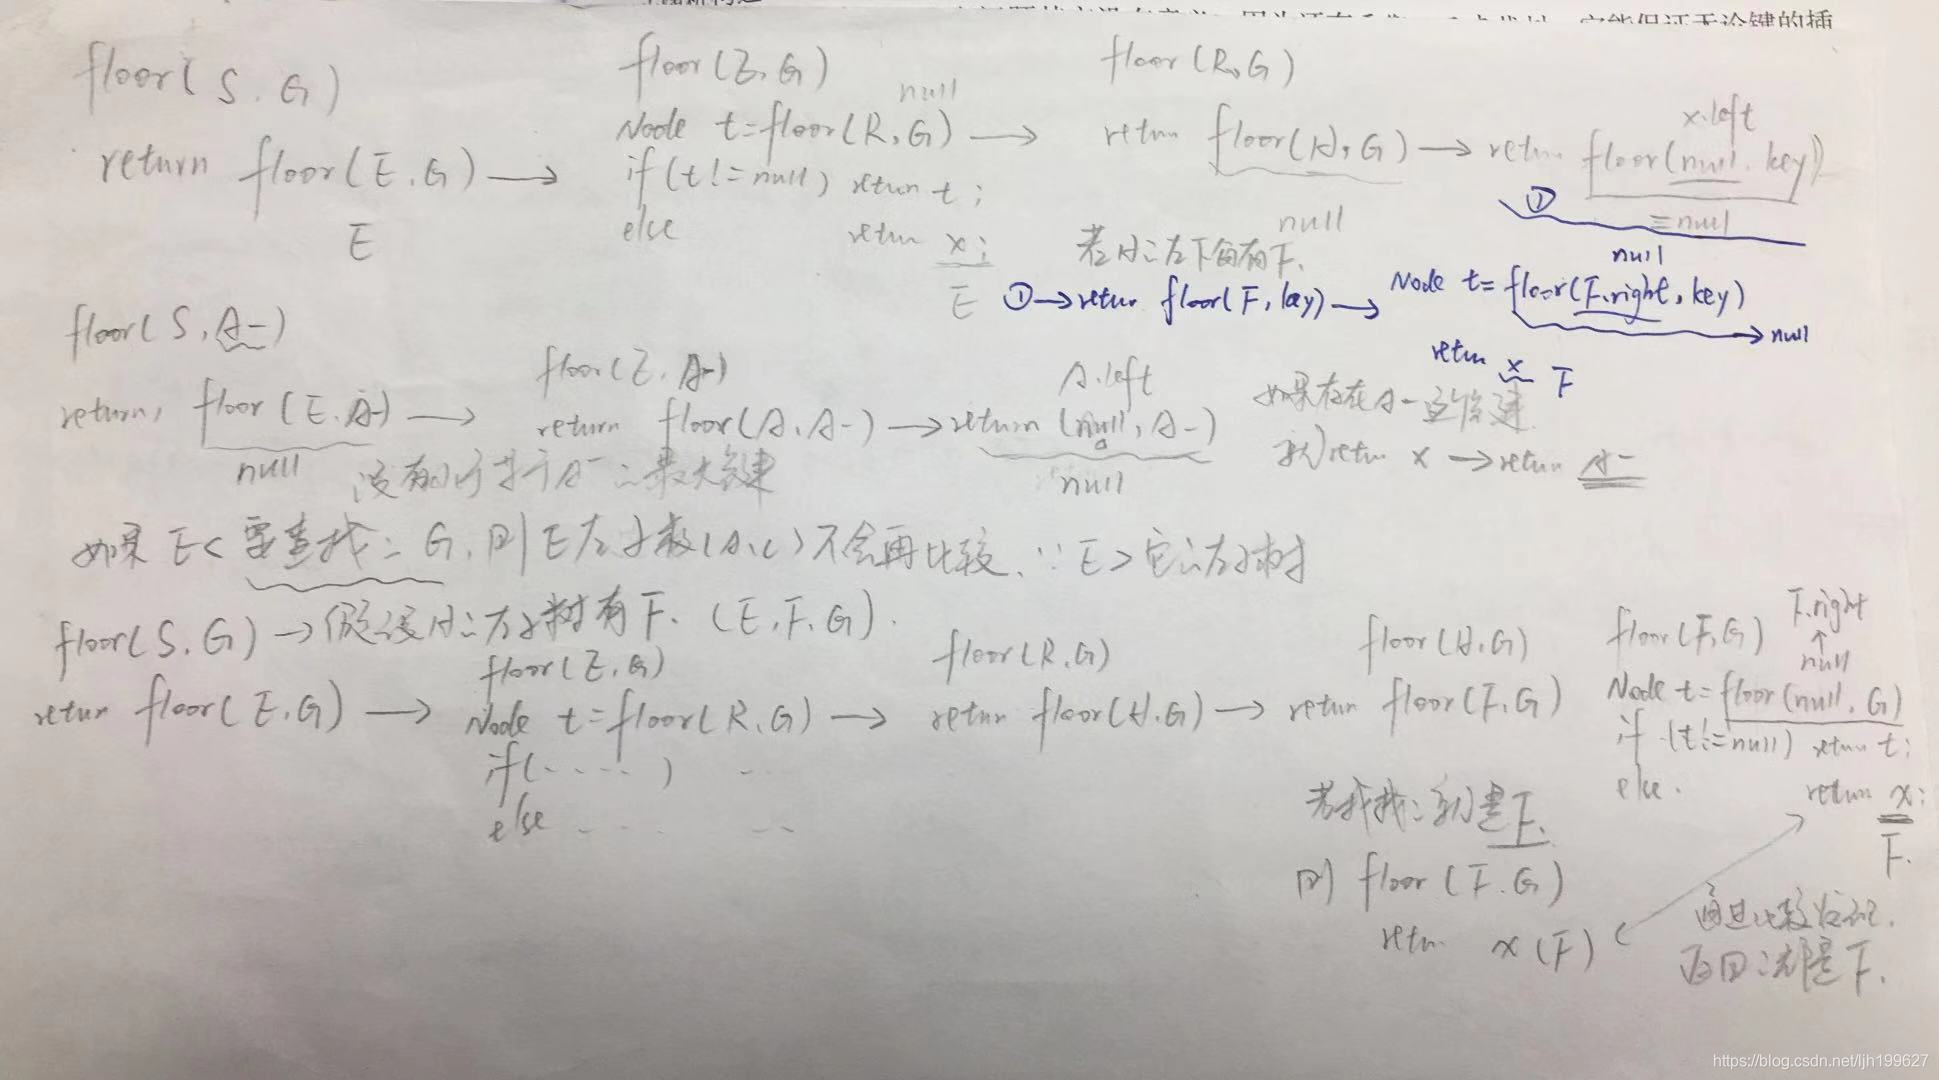 它能保证无论键的插
floor(S, G)
return floor(E, G) →
E
floor(E, G)
null
Node t=floor(R, G) →
if(t!=null) return t;
else return x;
E
floor(R, G)
return floor(H, G) → return floor(null, key)
x.left
null
=null
若H的左下面有F.
①
① → return floor(F, key) → Node t= floor(F.right, key)
null
→ null
return x F
floor(S, A-)
return, floor(E, A-) →
null
没有小于等于A-的最大键
floor(E, A-)
return floor(A, A-) → return (null, A-)
A.left
null
如果存在A-这个键
则return x → return A-
如果E<要查找的G, 则E左子树(A,C)不会再比较, ∵E>它的左子树
floor(S, G) → 假设H的左子树有F. (E, F, G).
return floor(E, G) →
floor(E, G)
Node t=floor(R, G) →
if(....) ..
else ... ..
floor(R, G)
return floor(H, G) →
floor(H, G)
return floor(F, G)
floor(F, G)
F.right
↑
null
Node t=floor(null, G)
if (t!=null) return t;
else.
return x;
F.
若我找的就是F.
则 floor(F, G)
return x(F)
通过比较发现.
返回的都是F.
https://blog.csdn.net/ljh199627